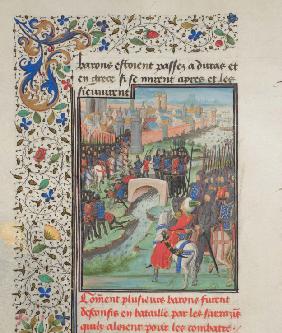 barons estoient passez a duras et
en grece si se mirent apres et les
sieuvirent
Coment plusieurs barons furent
desconfis en bataille par les sarrazins
quilz aloient pour les combatre